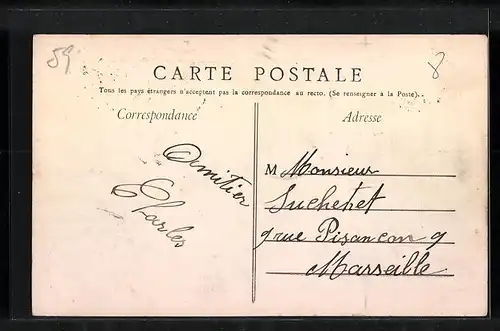 59
8
CARTE POSTALE
Tous les pays étrangers n'acceptent pas la correspondance au recto. (Se renseigner à la Poste).
Correspondance
Adresse
Amitier
Charles
M Monsieur
Suchetet
9 rue Pisancon 9
Marseille